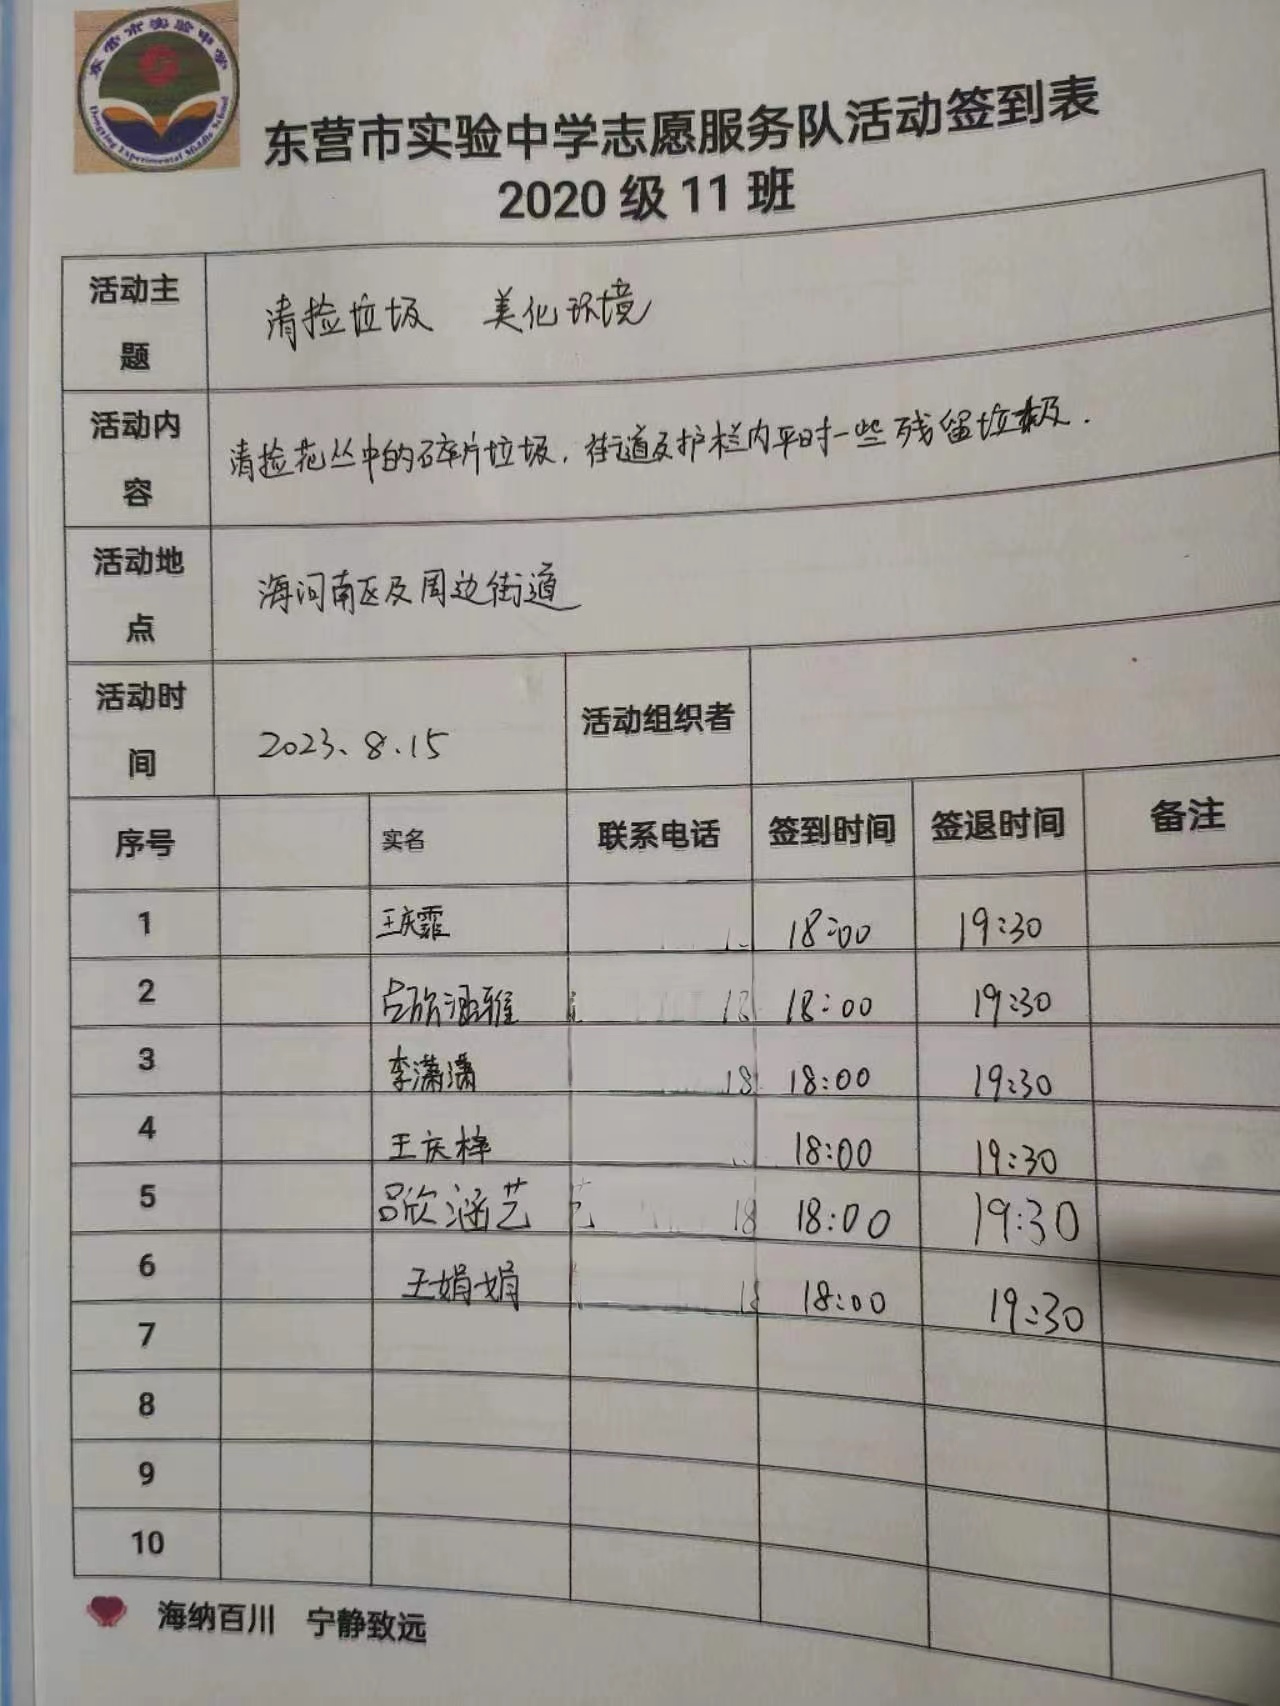 东营市实验中学
Dongying Experimental Middle School
东营市实验中学志愿服务队活动签到表
2020级11班
活动主题 清捡垃圾 美化环境
活动内容 清捡花丛中的碎片垃圾,街道及护栏内平时一些残留垃圾.
活动地点 海河南区及周边街道
活动时间 2023、8、15 活动组织者
序号 实名 联系电话 签到时间 签退时间 备注
1 王庆霏 18:00 19:30
2 吕欣涵雅 18 18:00 19:30
3 李潇潇 18 18:00 19:30
4 王庆梓 18:00 19:30
5 吕欣涵艺 18 18:00 19:30
6 王娟娟 18 18:00 19:30
7
8
9
10
海纳百川 宁静致远